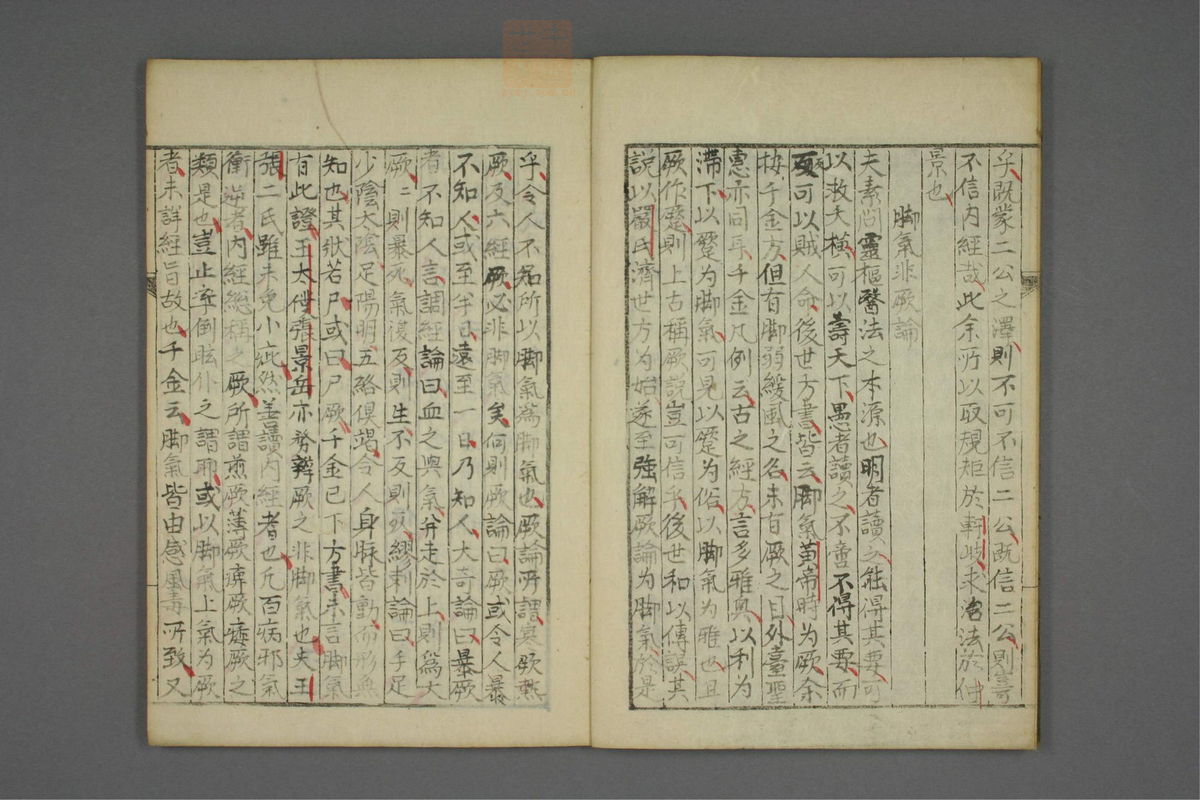 乎既蒙二公之澤則不可不信二公既信二公則寄
不信内經哉此余所以取規矩於軒岐求治法於仲
景也
脚氣非厥論
夫素問靈樞醫法之本源也明者讀之能得其要可
以救夭橫可以壽天下愚者讀之不啻不得其要而
反可以賊人命後世方書皆云脚氣黄帝時為厥余
按千金方但有脚弱緩風之名未有厥之目外臺聖
惠亦同耳千金凡例云古之經方言多雅奥以利為
滯下以蹷為脚氣可見以蹷為俗以脚氣為雅也且
厥作蹷則上古稱厥説豈可信乎後世和以傳誤其
説以嚴氏濟世方為始遂至強解厥論為脚氣於是
乎令人不知所以脚氣為脚氣也厥論所謂寒厥熱
厥及六經厥必非脚氣矣何則厥論曰厥或令人暴
不知人或至半日遠至一日乃知人大奇論曰暴厥
者不知人言調經論曰血之與氣并走於上則為大
厥〻則暴死氣復反則生不反則死繆刺論曰手足
少陰太陰足陽明五絡俱竭令人身脉皆動而形無
知也其狀若尸或曰尸厥千金已下方書未言脚氣
有此證王太仆張景岳亦務辨厥之非脚氣也夫王
張二氏雖未免小疵然善讀内經者也凡百病邪氣
衝逆者内經総稱之厥所謂煎厥薄厥痺厥痿厥之
類是也豈止卒倒眩仆之謂耶或以脚氣上氣为厥
者未詳經旨故也千金云脚氣皆由感風毒所致又